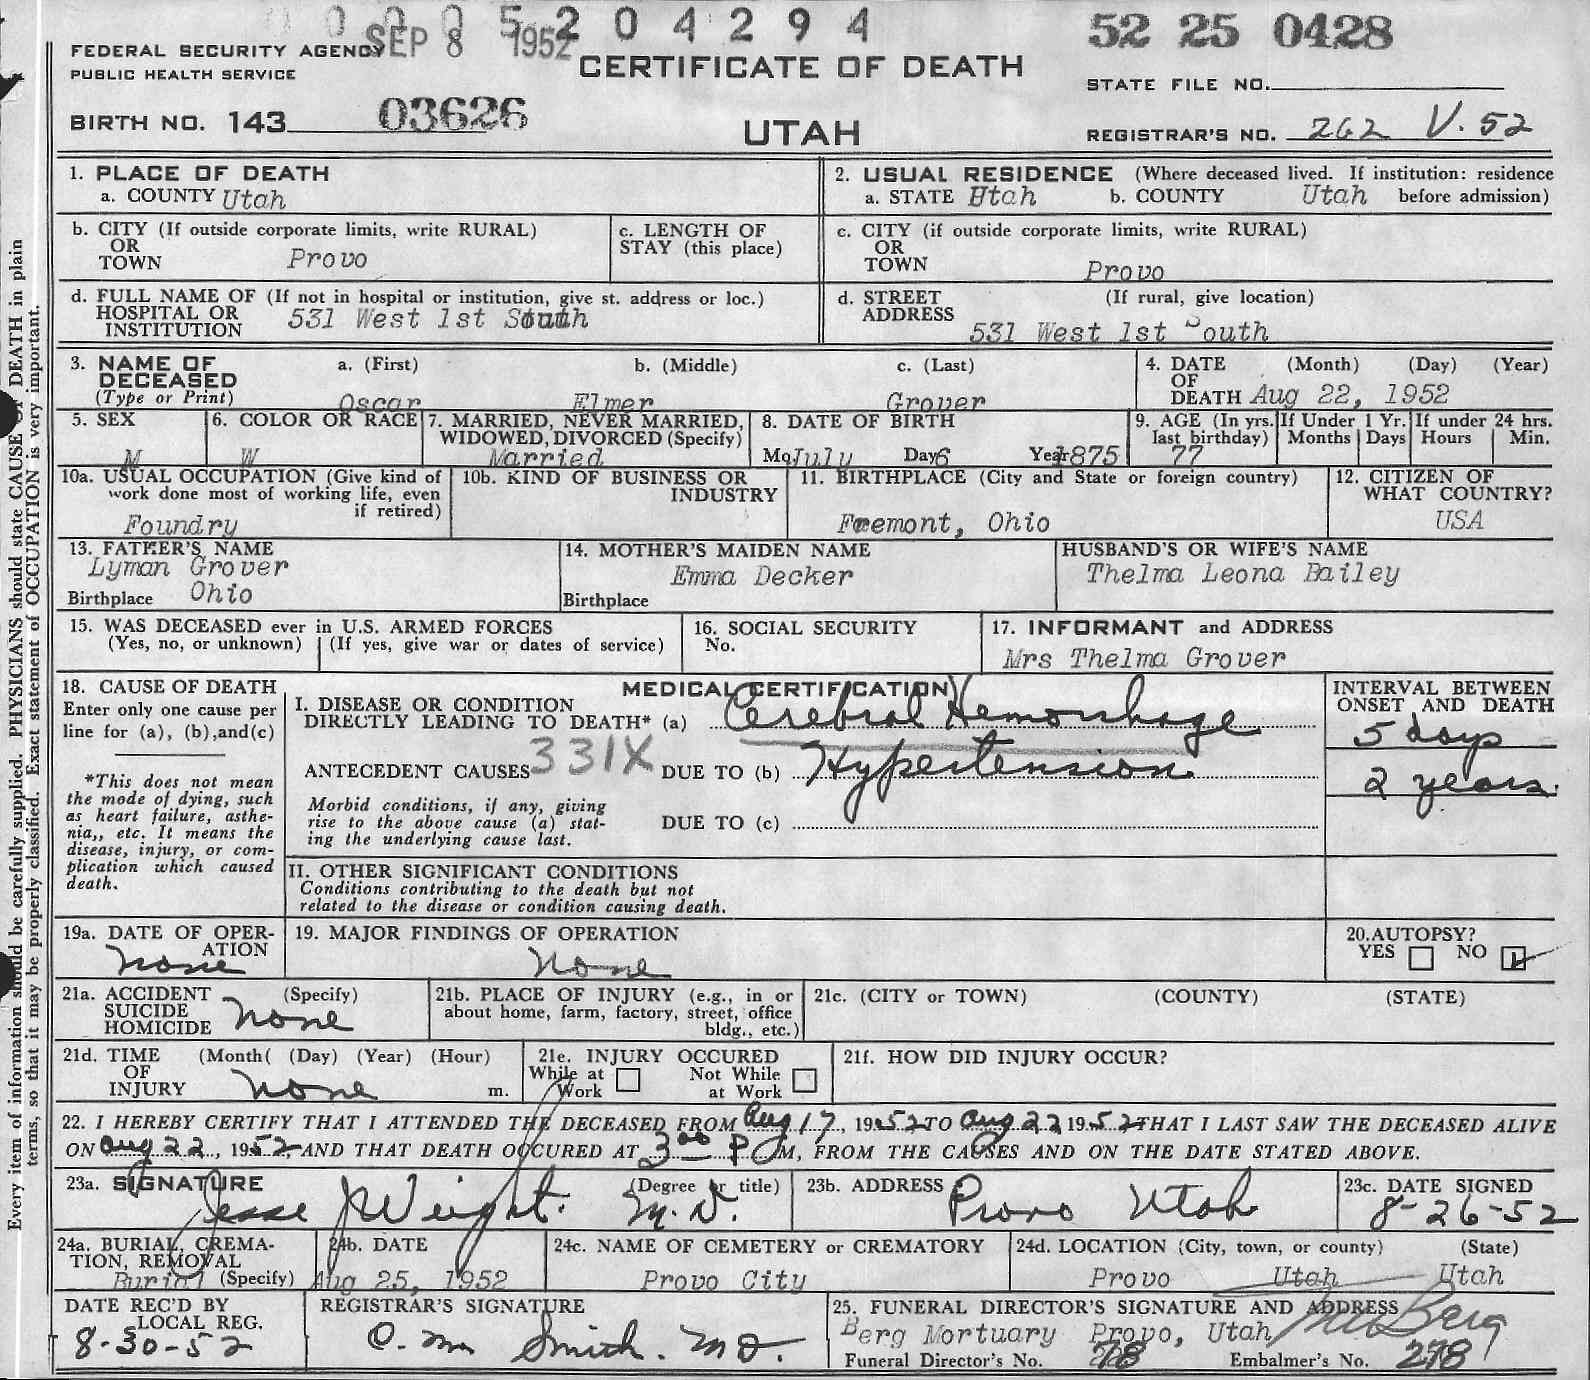 0 0 0 0 5 2 0 4 2 9 4
SEP 8 1952
52 25 0428
FEDERAL SECURITY AGENCY
PUBLIC HEALTH SERVICE
CERTIFICATE OF DEATH
STATE FILE NO.
BIRTH NO. 143 03626
UTAH
REGISTRAR'S NO. 262 V. 52
1. PLACE OF DEATH
a. COUNTY Utah
2. USUAL RESIDENCE (Where deceased lived. If institution: residence
a. STATE Utah b. COUNTY Utah before admission)
b. CITY (If outside corporate limits, write RURAL)
OR
TOWN Provo
c. LENGTH OF
STAY (this place)
c. CITY (if outside corporate limits, write RURAL)
OR
TOWN Provo
d. FULL NAME OF (If not in hospital or institution, give st. address or loc.)
HOSPITAL OR
INSTITUTION 531 West 1st South
d. STREET (If rural, give location)
ADDRESS
531 West 1st South
3. NAME OF
DECEASED
(Type or Print)
a. (First) b. (Middle) c. (Last)
Oscar Elmer Grover
4. DATE (Month) (Day) (Year)
OF
DEATH Aug 22, 1952
5. SEX
M
6. COLOR OR RACE
W
7. MARRIED, NEVER MARRIED,
WIDOWED, DIVORCED (Specify)
Married
8. DATE OF BIRTH
Mo. July Day 6 Year 1875
9. AGE (In yrs.
last birthday)
77
If Under 1 Yr.
Months Days
If under 24 hrs.
Hours Min.
10a. USUAL OCCUPATION (Give kind of
work done most of working life, even
if retired)
Foundry
10b. KIND OF BUSINESS OR
INDUSTRY
11. BIRTHPLACE (City and State or foreign country)
Fremont, Ohio
12. CITIZEN OF
WHAT COUNTRY?
USA
13. FATHER'S NAME
Lyman Grover
Birthplace Ohio
14. MOTHER'S MAIDEN NAME
Emma Decker
Birthplace
HUSBAND'S OR WIFE'S NAME
Thelma Leona Bailey
15. WAS DECEASED ever in U.S. ARMED FORCES
(Yes, no, or unknown) (If yes, give war or dates of service)
16. SOCIAL SECURITY
No.
17. INFORMANT and ADDRESS
Mrs Thelma Grover
18. CAUSE OF DEATH
Enter only one cause per
line for (a), (b),and(c)
*This does not mean
the mode of dying, such
as heart failure, asthe-
nia,, etc. It means the
disease, injury, or com-
plication which caused
death.
MEDICAL CERTIFICATION
I. DISEASE OR CONDITION
DIRECTLY LEADING TO DEATH* (a) Cerebral Hemorrhage
ANTECEDENT CAUSES 331X DUE TO (b) Hypertension
Morbid conditions, if any, giving
rise to the above cause (a) stat-
ing the underlying cause last.
DUE TO (c)
INTERVAL BETWEEN
ONSET AND DEATH
5 days
2 years.
II. OTHER SIGNIFICANT CONDITIONS
Conditions contributing to the death but not
related to the disease or condition causing death.
19a. DATE OF OPER-
ATION
none
19. MAJOR FINDINGS OF OPERATION
none
20. AUTOPSY?
YES NO
21a. ACCIDENT (Specify)
SUICIDE
HOMICIDE none
21b. PLACE OF INJURY (e.g., in or
about home, farm, factory, street, office
bldg., etc.)
21c. (CITY or TOWN) (COUNTY) (STATE)
21d. TIME (Month( (Day) (Year) (Hour)
OF
INJURY none m.
21e. INJURY OCCURED
While at Not While
Work at Work
21f. HOW DID INJURY OCCUR?
22. I HEREBY CERTIFY THAT I ATTENDED THE DECEASED FROM Aug 17, 1952 TO Aug 22 1952 THAT I LAST SAW THE DECEASED ALIVE
ON Aug 22, 1952 AND THAT DEATH OCCURED AT 3 00 P M, FROM THE CAUSES AND ON THE DATE STATED ABOVE.
23a. SIGNATURE (Degree or title)
Jesse J Weight. M.D.
23b. ADDRESS Provo Utah
23c. DATE SIGNED
8-26-52
24a. BURIAL, CREMA-
TION, REMOVAL
Burial (Specify)
24b. DATE
Aug 25, 1952
24c. NAME OF CEMETERY or CREMATORY
Provo City
24d. LOCATION (City, town, or county) (State)
Provo Utah Utah
DATE REC'D BY
LOCAL REG.
8-30-52
REGISTRAR'S SIGNATURE
O. M. Smith. M.D.
25. FUNERAL DIRECTOR'S SIGNATURE AND ADDRESS
Berg Mortuary Provo, Utah Berg
Funeral Director's No. 78 Embalmer's No. 278
Every item of information should be carefully supplied. PHYSICIANS should state CAUSE OF DEATH in plain
terms, so that it may be properly classified. Exact statement of OCCUPATION is very important.